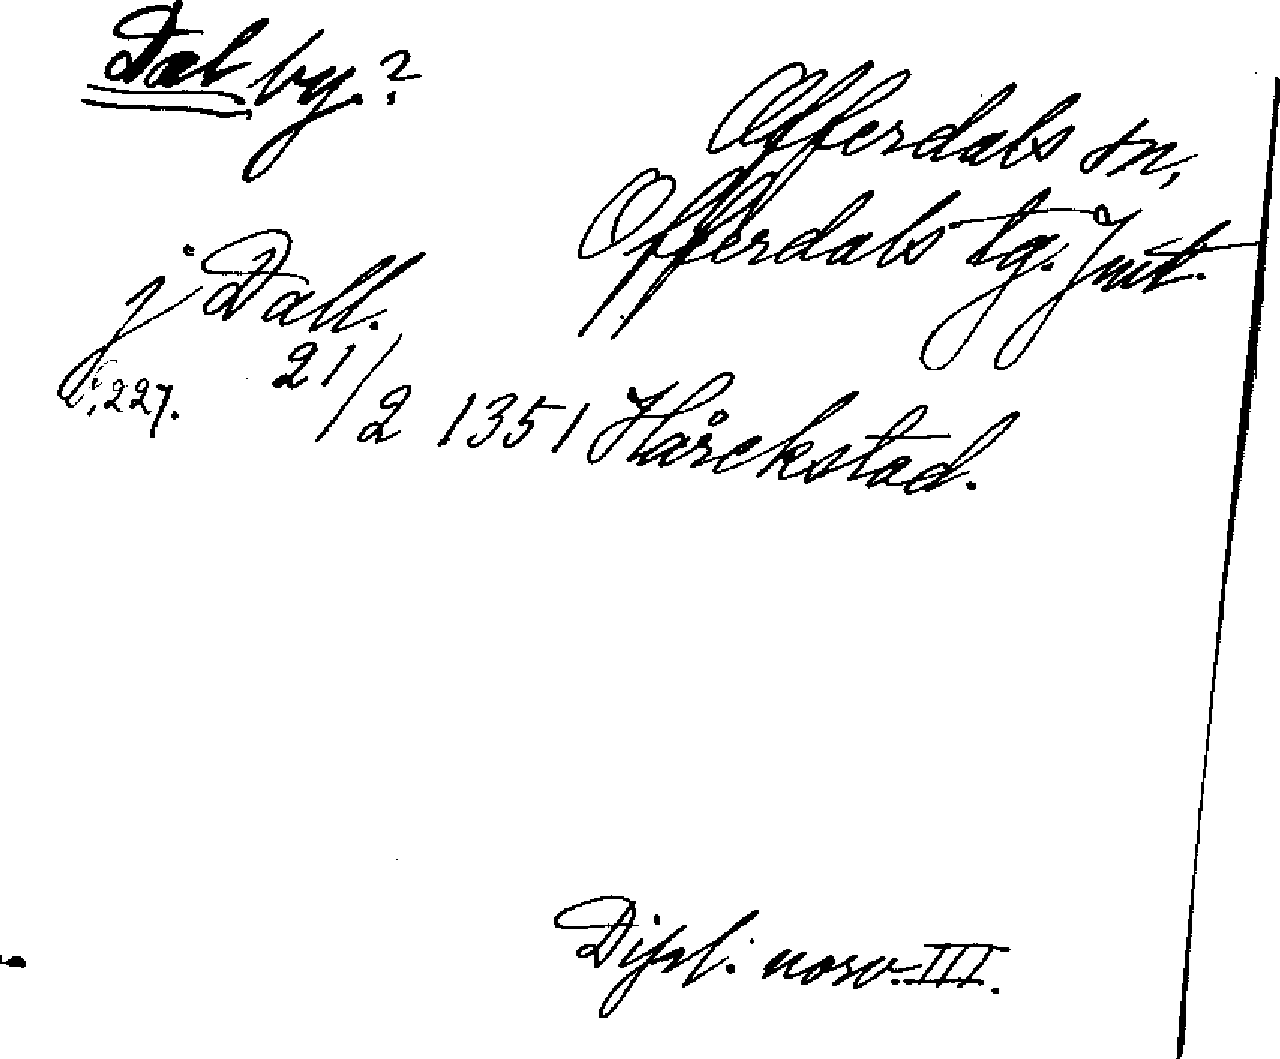 Dal by.?
Offerdals sn,
Offerdals tg. Jmt.
j Dall.
s, 227. 21/2 1351 Hårekstad.
Dipl. norv. III.